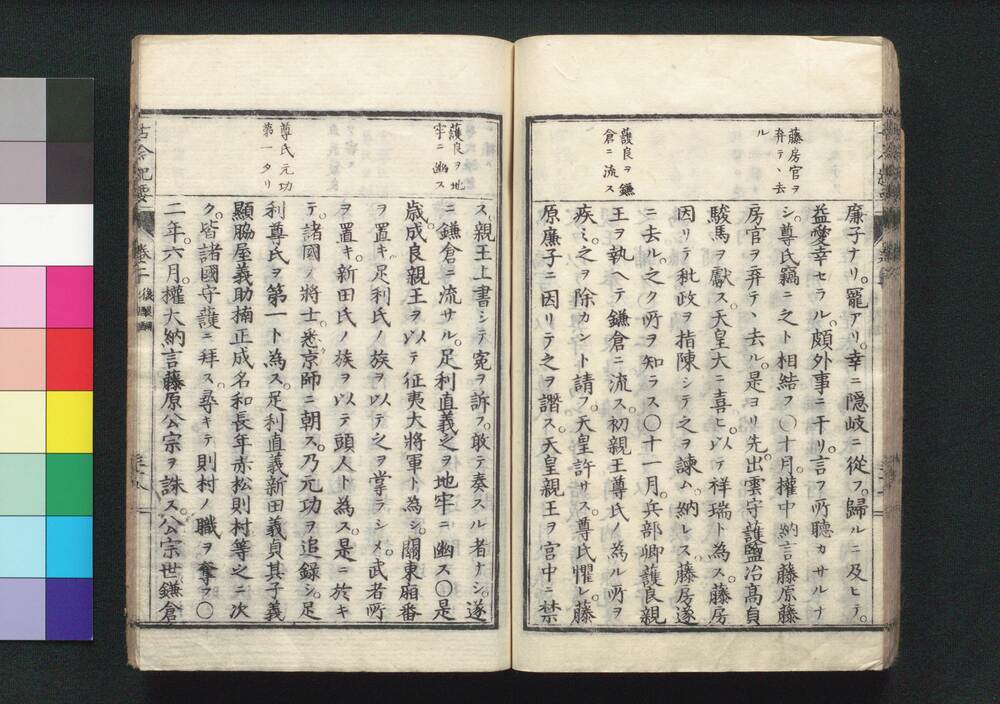 藤房官ヲ
弃テヽ去
ル
護良ヲ鎌
倉ニ流ス
廉子ナリ。寵アリ。幸ニ隠岐ニ從フ。歸ルニ及ヒテ。
益愛幸セラル。頗外事ニ干リ。言フ所聴カサルナ
シ。尊氏竊ニ之ト相結フ〇十月。權中納言藤原藤
房官ヲ弃テヽ去ル。是ヨリ先。出雲守護鹽冶高貞
駿馬ヲ獻ス。天皇大ニ喜ヒ。以テ祥瑞ト為ス。藤房
因リテ秕政ヲ指陳シテ之ヲ諫ム。納レス。藤房遂
ニ去ル。之ク所ヲ知ラス〇十一月。兵部卿護良親
王ヲ執ヘテ鎌倉ニ流ス。初親王尊氏ノ為ル所ヲ
疾ミ。之ヲ除カント請フ。天皇許サス。尊氏懼レ。藤
原廉子ニ因リテ之ヲ譖ス。天皇親王ヲ宮中ニ禁
護良ヲ地
牢ニ幽ス
尊氏元功
第一タリ
ス。親王上書シテ寃ヲ訴フ。敢テ奏スル者ナシ。遂
ニ鎌倉ニ流サル。足利直義之ヲ地牢ニ幽ス〇是
歳。成良親王ヲ以テ征夷大將軍ト為シ。關東廂番
ヲ置キ。足利氏ノ族ヲ以テ之ヲ掌ラシメ。武者所
ヲ置キ。新田氏ノ族ヲ以テ頭人ト為ス。是ニ於キ
テ。諸國ノ將士。悉京師ニ朝ス。乃元功ヲ追録シ。足
利尊氏ヲ第一ト為ス。足利直義新田義貞其子義
顯脇屋義助楠正成名和長年赤松則村等之ニ次
ク。皆諸國守護ニ拜ス。尋キテ則村ノ職ヲ奪フ〇
二年。六月。權大納言藤原公宗ヲ誅ス。公宗世鎌倉
古今紀要
卷二 後醍醐